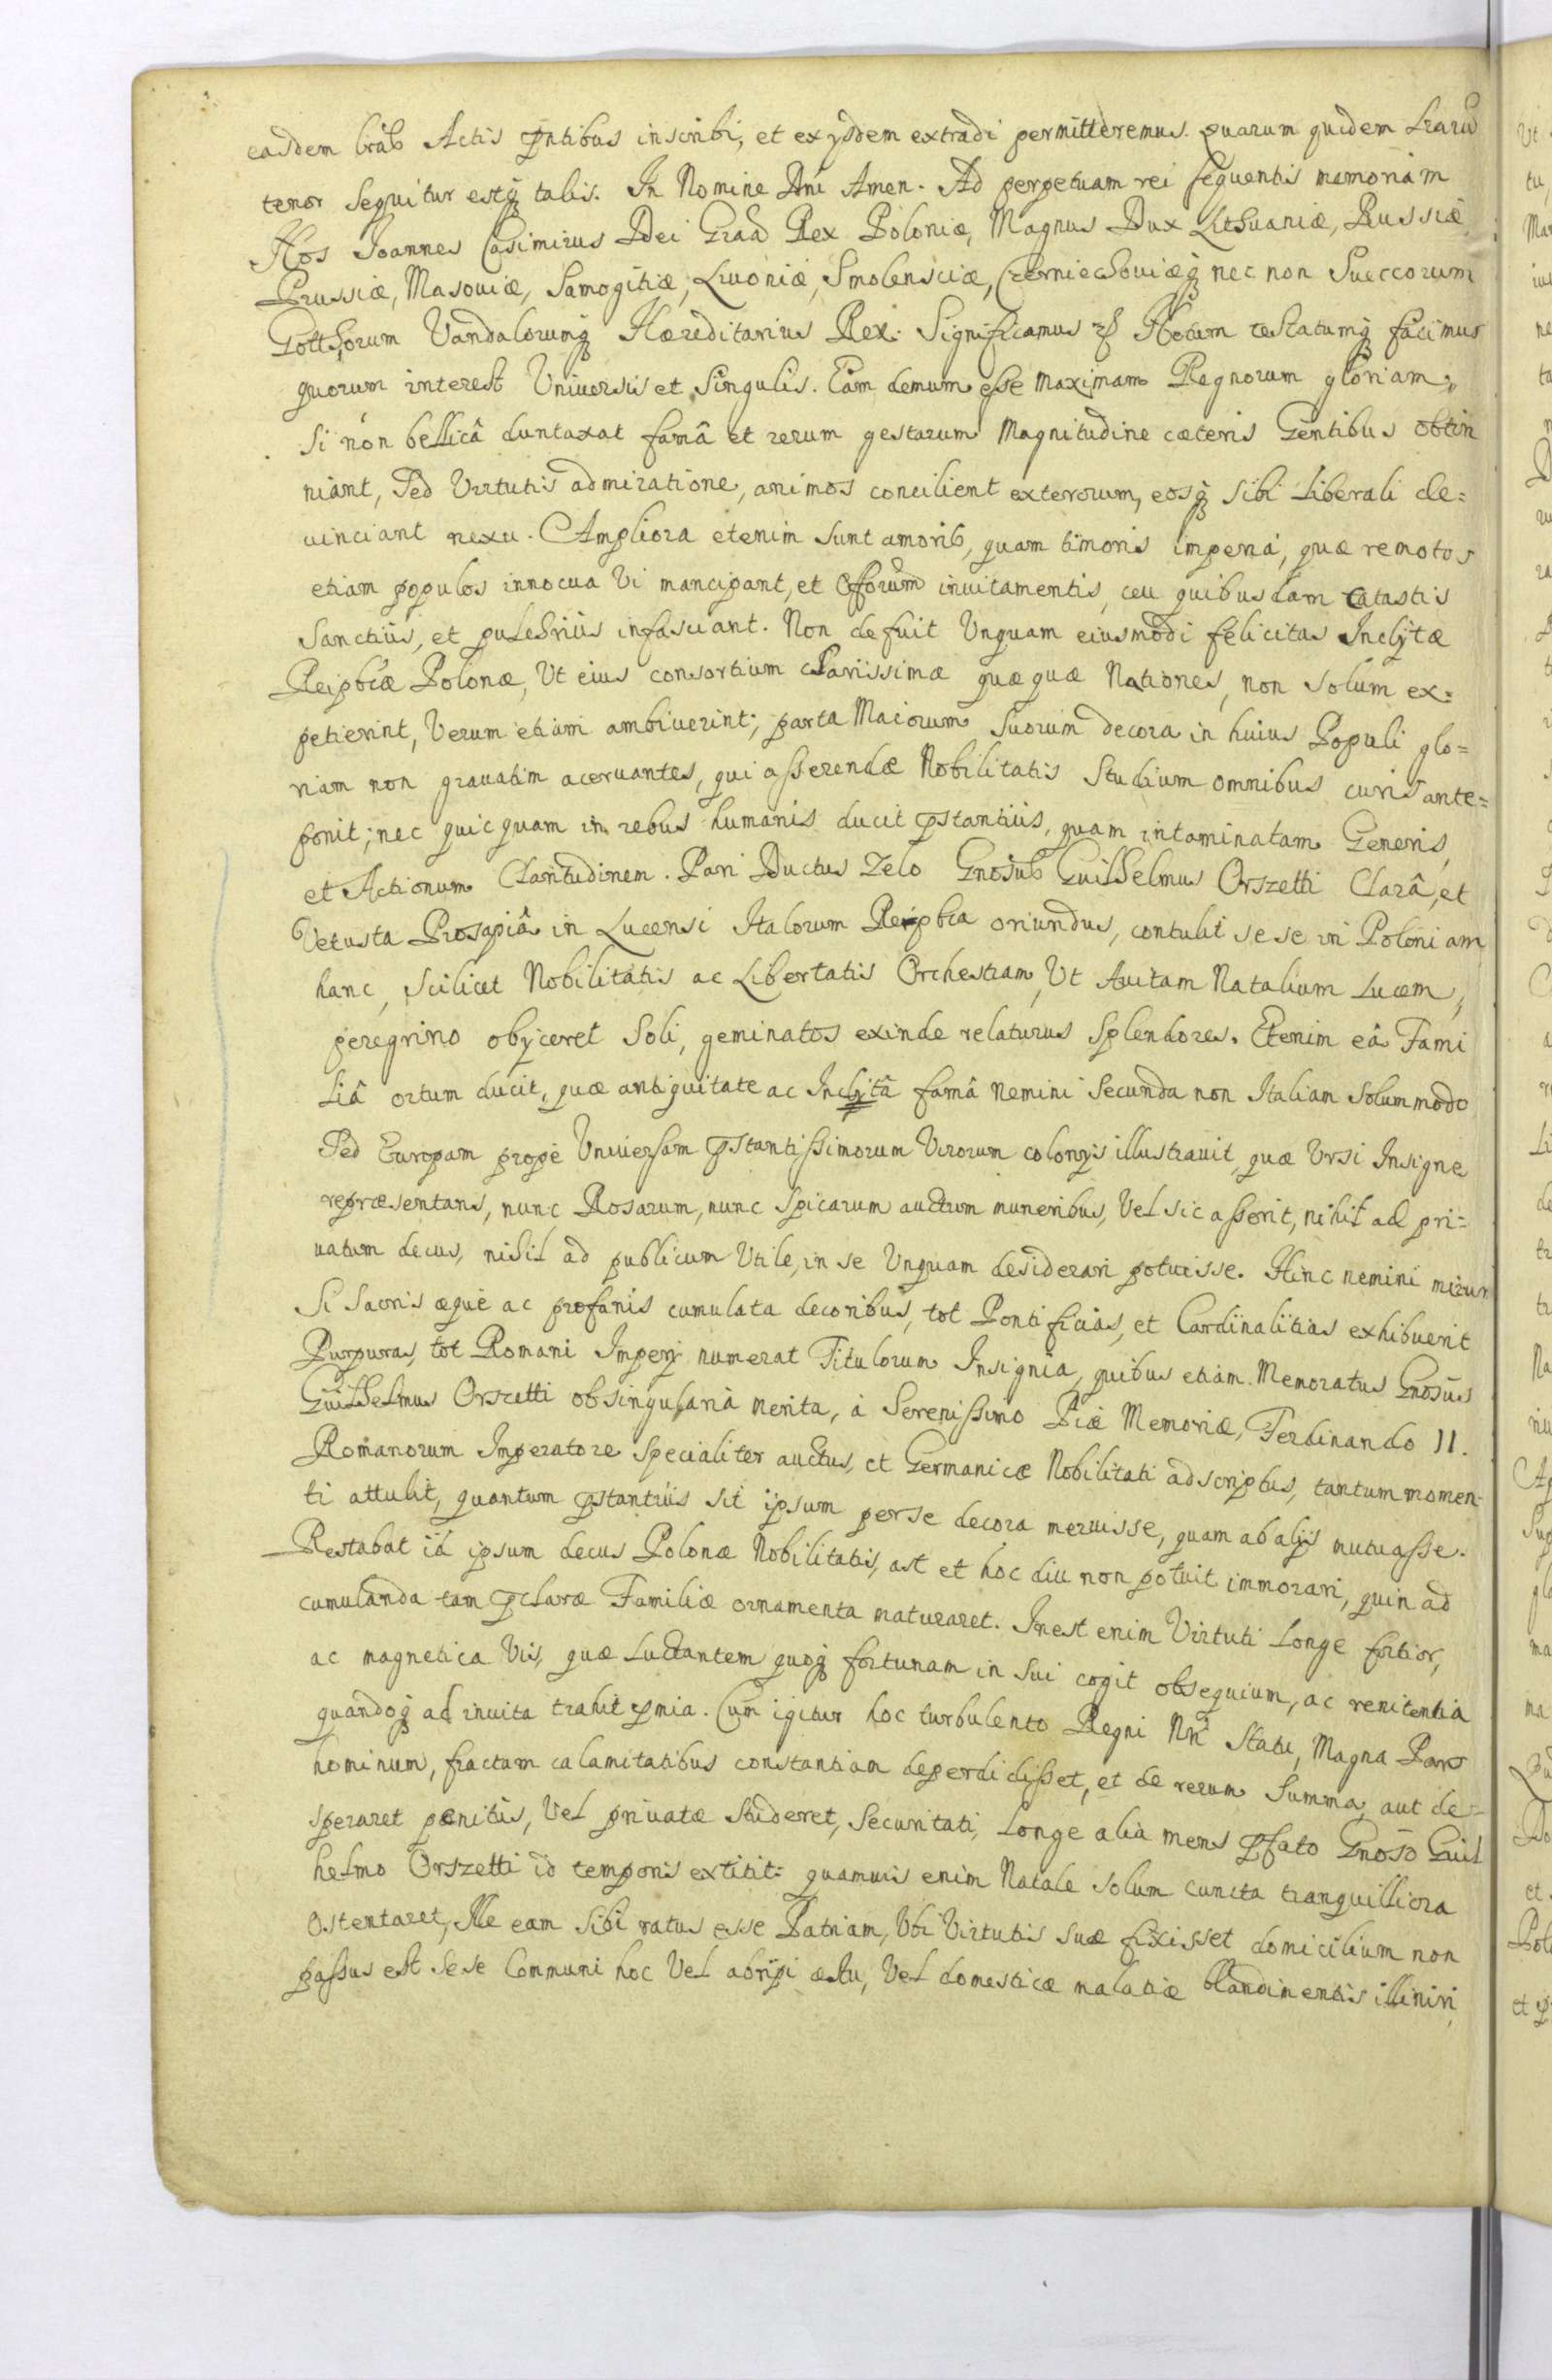 easdem lrãs Actis pntibus inscribi, et ex ysdem extradi permitteremus. Quarum quidem Lrarũ
tenor sequitur estq3 talis. In Nomine Dni Amen. Ad perpetuam rei sequentis memoriam
Nos Joannes Casimirus Dei Gra̅ Rex Poloniæ, Magnus Dux Lithuaniæ, Russiæ
Prussiæ, Masouiæ, Samogitiæ, Liuoniæ, Smolensciæ, Czerniechouiæq3 nec non Sueccorum
Gotthorum Vandalorumq3 Hæreditarius Rex. Significamus Notum testatumq3 facimus
quorum interest Uniuersis et Singulis. Eam demum esse maximam Regnorum gloriam,
si nón bellicâ duntaxat famâ et rerum gestarum Magnitudine cæteris Gentibus obtin
niant, Sed Virtutis admiratione, animos concilient exterorum, eosq3 sibi Liberali de=
uinciant nexu. Ampliora etenim sunt amoris, quam timoris imperia, quæ remotos
etiam populos innocua Vi mancipant, et invitamentis, ceu quibusdam Catastis
Sanctius, et pulchriùs infasciant. Non defuit Unquam eiusmodi felicitas Inclytæ
Reipbcæ Polonæ, Ut eius consortium clarissimæ quæ quæ Nationes, non solum ex=
petierint, Verum etiam ambiuerint; parta Maiorum Suorum decora in huius Populi glo=
riam non grauatim aceruantes, qui asserendæ Nobilitatis Studium omnibus curis ante=
ponit; nec quicquam in rebus humanis ducit pstantiùs, quam intaminatam Generis,
et Actionum Claritudinem. Pari Ductus Zelo Gnosus Guilhelmus Orszetti Clarâ, et
Vetusta Prosapiâ in Lucensi Italorum Reipbca oriundus, contulit se se in Poloniam
hanc, scilicet Nobilitatis ac Libertatis Orchestram, Ut Auitam Natalium Lucem,
peregrino obyceret Soli, geminatos exinde relaturus Splendores. Etenim eâ Fami
liâ ortum ducit, quæ antiquitate ac Inclytâ famâ nemini Secunda non Italiam solummodo
Sed Europam propè Uniuersam pstantissimorum Virorum colonys illustrauit, quæ Ursi Insigne
repræsentans, nunc Rosarum, nunc Spicarum auctum muneribus, Vel sic asserit, nihil ad pri=
uatum decus, nihil ad publicum Utile, in se Unquam desiderari potuisse. Hinc nemini mirum
Si Sacris æquè ac profanis cumulata decoribus, tot Pontificias, et Cardinalitias exhibuerit
Purpuras, tot Romani Impery numerat Titulorum Insignia, quibus etiam Memoratus Gnosus
Guilhelmus Orszetti ob singularia merita, à Serenissimo Piæ Memoriæ, Ferdinando II.
Romanorum Imperatore specialiter auctus, et Germanicæ Nobilitati adscriptus, tantum momen=
ti attulit, quantum pstantiùs sit ipsum per se decora meruisse, quam ab alys mutuasse.
Restabat id ipsum decus Polonæ Nobilitatis, ast et hoc diu non potuit immorari, quin ad
cumulanda tam pclaræ Familiæ ornamenta maturaret. Inest enim Virtuti Longe fortior,
ac magnetica Vis, quæ Luctantem quoq3 fortunam in sui cogit obsequium, ac renitentia
quandoq3 ad inuita trahit pmia. Cum igitur hoc turbulento Regni Nri Statu, Magna Pars
hominum, fractam calamitatibus constantiam deperdidisset, et de rerum Summa, aut de=
speraret penitùs, Vel priuatæ studeret, Securitati, Longe alia mens pfato Gnoso Guil
helmo Orszetti id temporis extitit: quamuis enim Natale solum cuncta tranquilliora
Ostentaret, Ille eam sibi ratus esse Patriam, Ubi Virtutis suæ fixisset domicilium non
passus est sese Communi hoc Vel abripi æstu, Vel domesticæ malatiæ blandimentis illiniri,